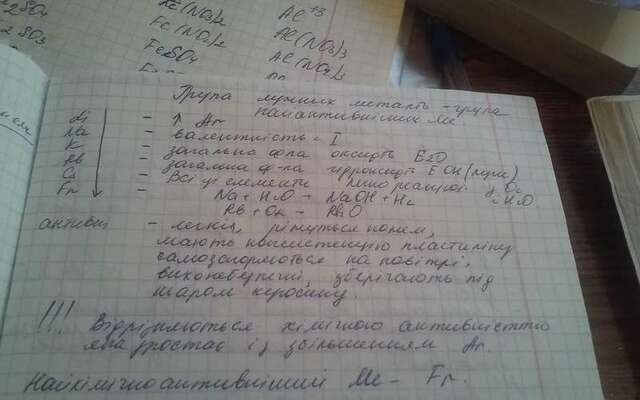 Fe(NO3)2
Al+3
2SO3
Fe(NO2)2
Al(NO3)3
FeSO4
Al(NO2)3
Група лужних металів - група
найактивніших Ме
Li - ↑ Ar
Na - валентність - I
K - загальна ф-ла оксидів E2O
Rb - загальна ф-ла гідроксидів EOH (луги)
Cs - Всі ці елементи реакції з O2
Fr - Na + H2O → NaOH + H2 з H2O
Rb + O2 → Rb2O
активні - легкі, ріжуться ножем,
мають консистенцію пластиліну
самозагоряються на повітрі,
вибухонебезпечні, зберігають під
шаром керосину.
!!! Відрізняються хімічною активністю
яка зростає із збільшенням Ar.
Найхімічноактивніший Ме - Fr.